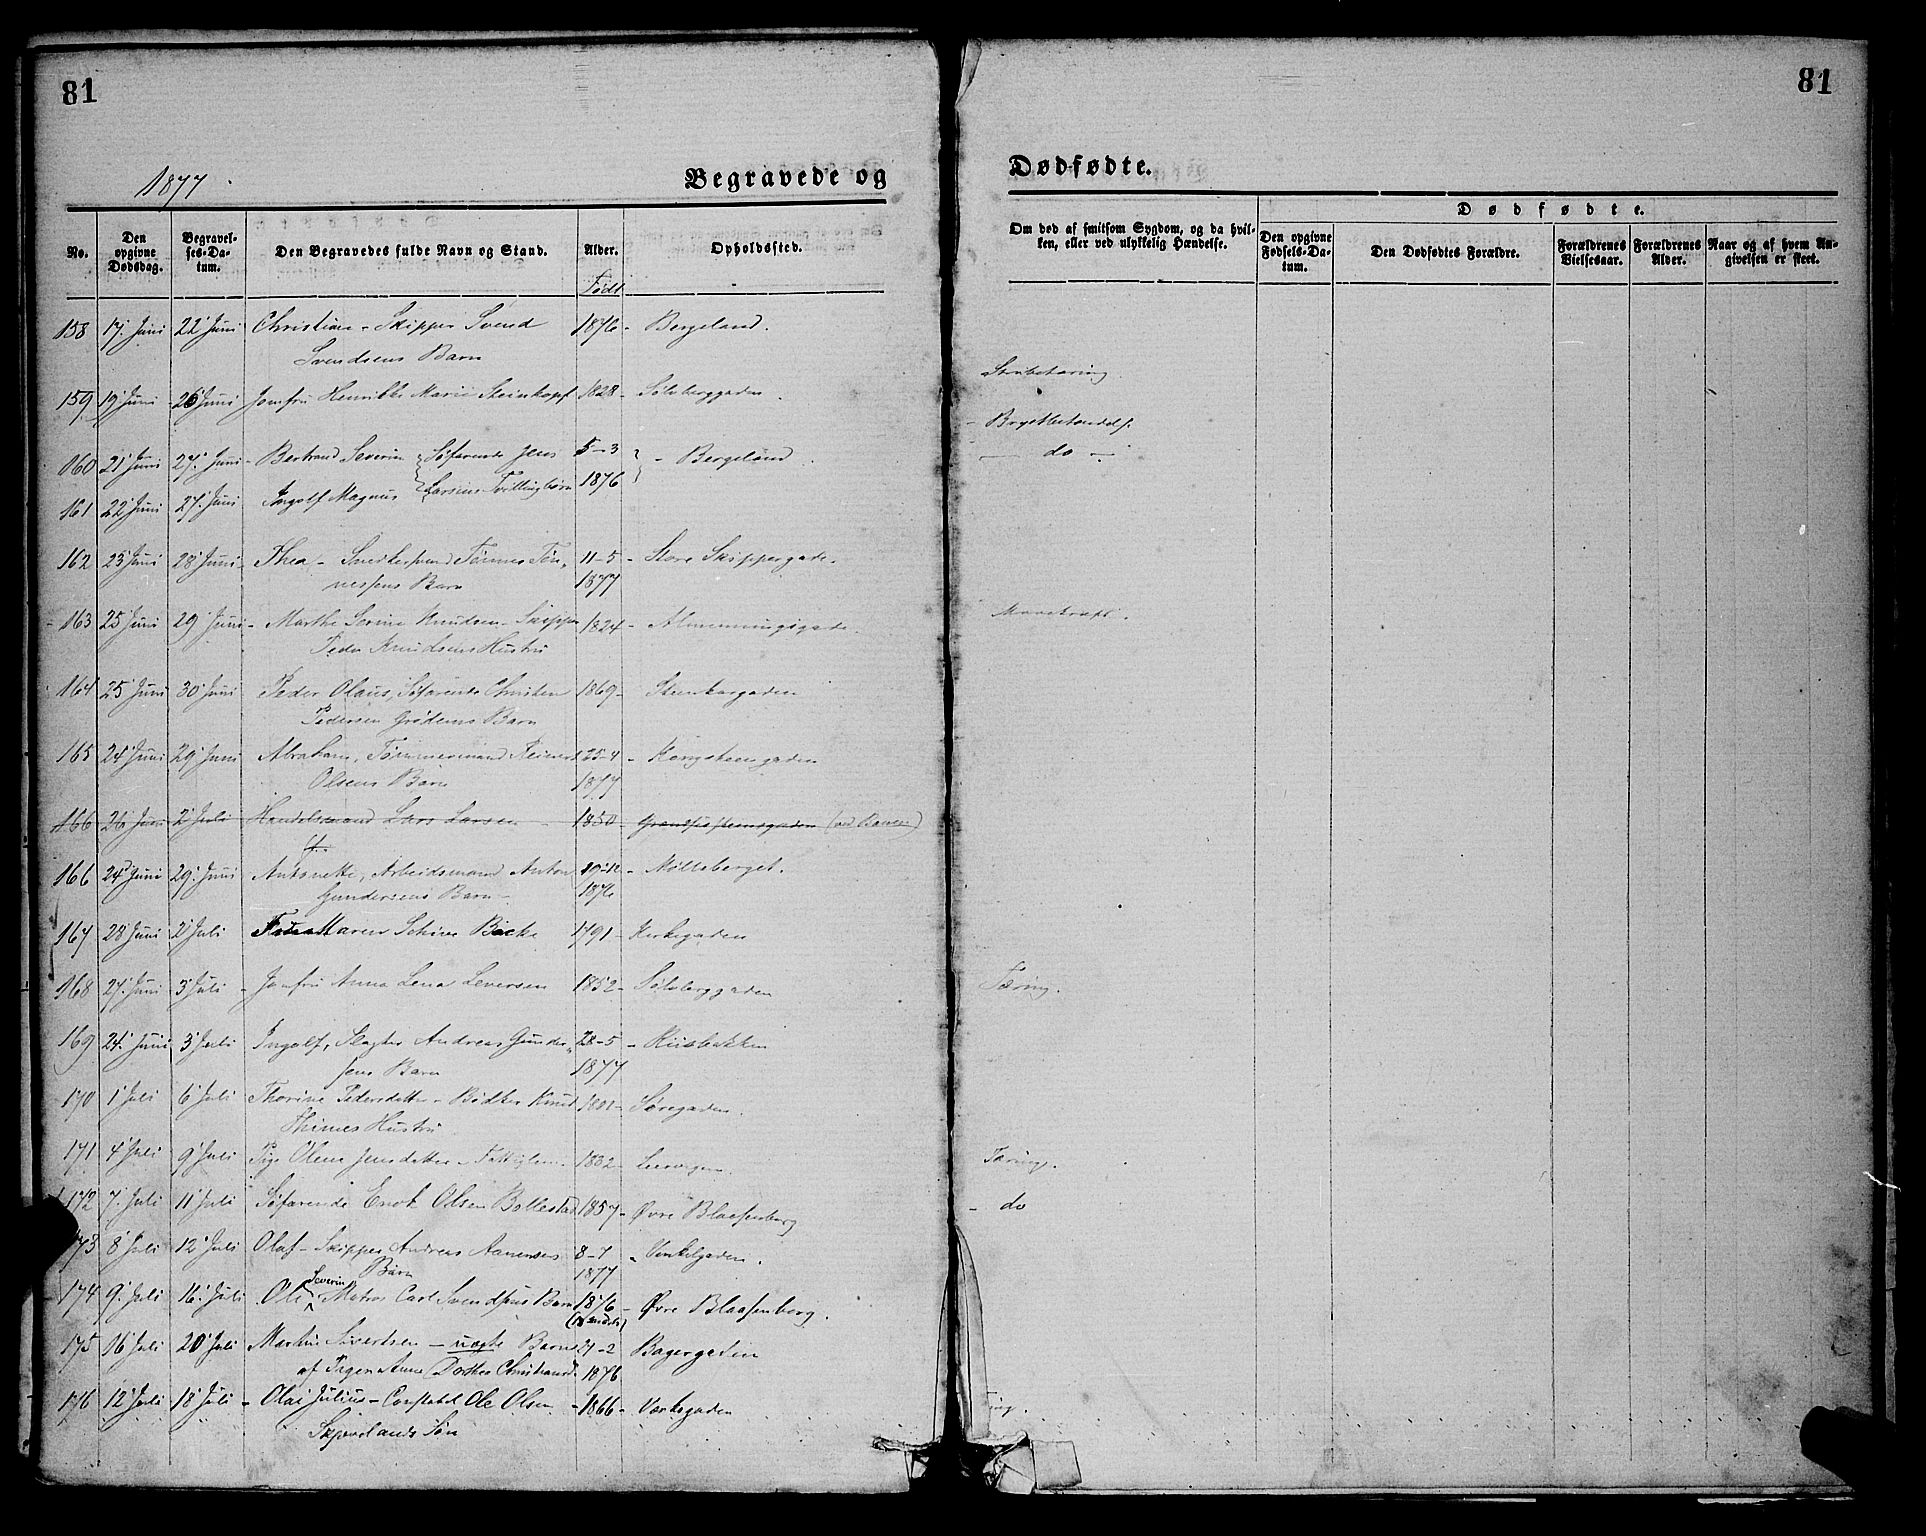 81
81
1877
Begravede og
Dødfødte.
No.
Den opgivne Dødsdag.
Begravelses-Datum.
Den Begravedes fulde Navn og Stand.
Alder.
Født
Opholdssted.
Om død af smitsom Sygdom, og da hvilken, eller ved ulykkelig Hændelse.
Dødfødte.
Den opgivne Fødsels-Datum.
Den Dødfødtes Forældre.
Forældrenes Vielsesaar.
Forældrenes Alder.
Naar og af hvem Angivelsen er skeet.
158 17. Juni 22 Juni Christian - Skipper Svend 1876 - Bergeland.
Svendsens Barn
Strubetæring
159 19 Juni 26 Juni Jomfru Henrikke Marie Steinkopf 1828 - Sølvberggaden.
160 21 Juni 27. Juni - Bertrand Severin Søfarende Jens 5-3 - Bergeland
- do -
161 22 Juni 27. Juni Ingolf Magnus Larsens Tvillingbørn 1876
162 23 Juni 28 Juni - Thea - Snedkersvend Tønnes Tøn- 11-5 - Store Skippergade.
nessens Barn 1877
163 25 Juni 29 Juni - Marthe Serine Knudsen - Skipper 1824 - Almenningsgade.
Peder Knudsens Hustru
164 25 Juni 30 Juni Peder Olaus, Søfarende Christen 1869 - Steinkargaden
Pedersen Grødems Barn
165 24 Juni 29 Juni Abraham, Tømmermand Reinert 25-4 - Kongsteengaden
Olsens Barn 1877
166 26 Juni 2 Juli Handelsmand Lars Larsen 1850 -
166 24 Juni 29. Juni Antonette, Arbeidsmand Anton 29-12 - Nølleberget.
Gundersens Barn - 1876
167 28 Juni 2 Juli Maren Backe 1791 - Kirkegaden
168 27. Juni 3 Juli - Jomfru Anna Lena Leversen 1852 - Sølvberggaden
Tæring.
169 24. Juni 3 Juli Ingolf, Slagter Andreas Gunder- 28-5 - Riisbakken
sens Barn 1877
170 1 Juli 6 Juli Thorine Pedersdatter - Bødker Knud 1801 - Søregaden.
Thimes Hustru
171 4 Juli 9 Juli Pige Olene Jensdatter - Fattiglem - 1832 -
Tæring.
172 7. Juli 11 Juli Søfarende Enok Olsen Bollestad 1857 - Øvre Blaasenborg
- do
173 8 Juli 12 Juli Olaf - Skipper Andreas Aanensens 8-7 - Vinkelgaden.
Barn 1877
174 9. Juli 16. Juli Ole Severin Matros Carl Svendsens Barn 1876 - Øvre Blaasenborg.
175 16 Juli 20 Juli Martin Sivertsen - uægte Barn 21-2 Bagergaden
af Pigen Anne Dorthea 1876
176 12 Juli 18 Juli - Olai Julius - Constabel Ole Olsen - 1866 - Værksgaden
Skjævelands Søn